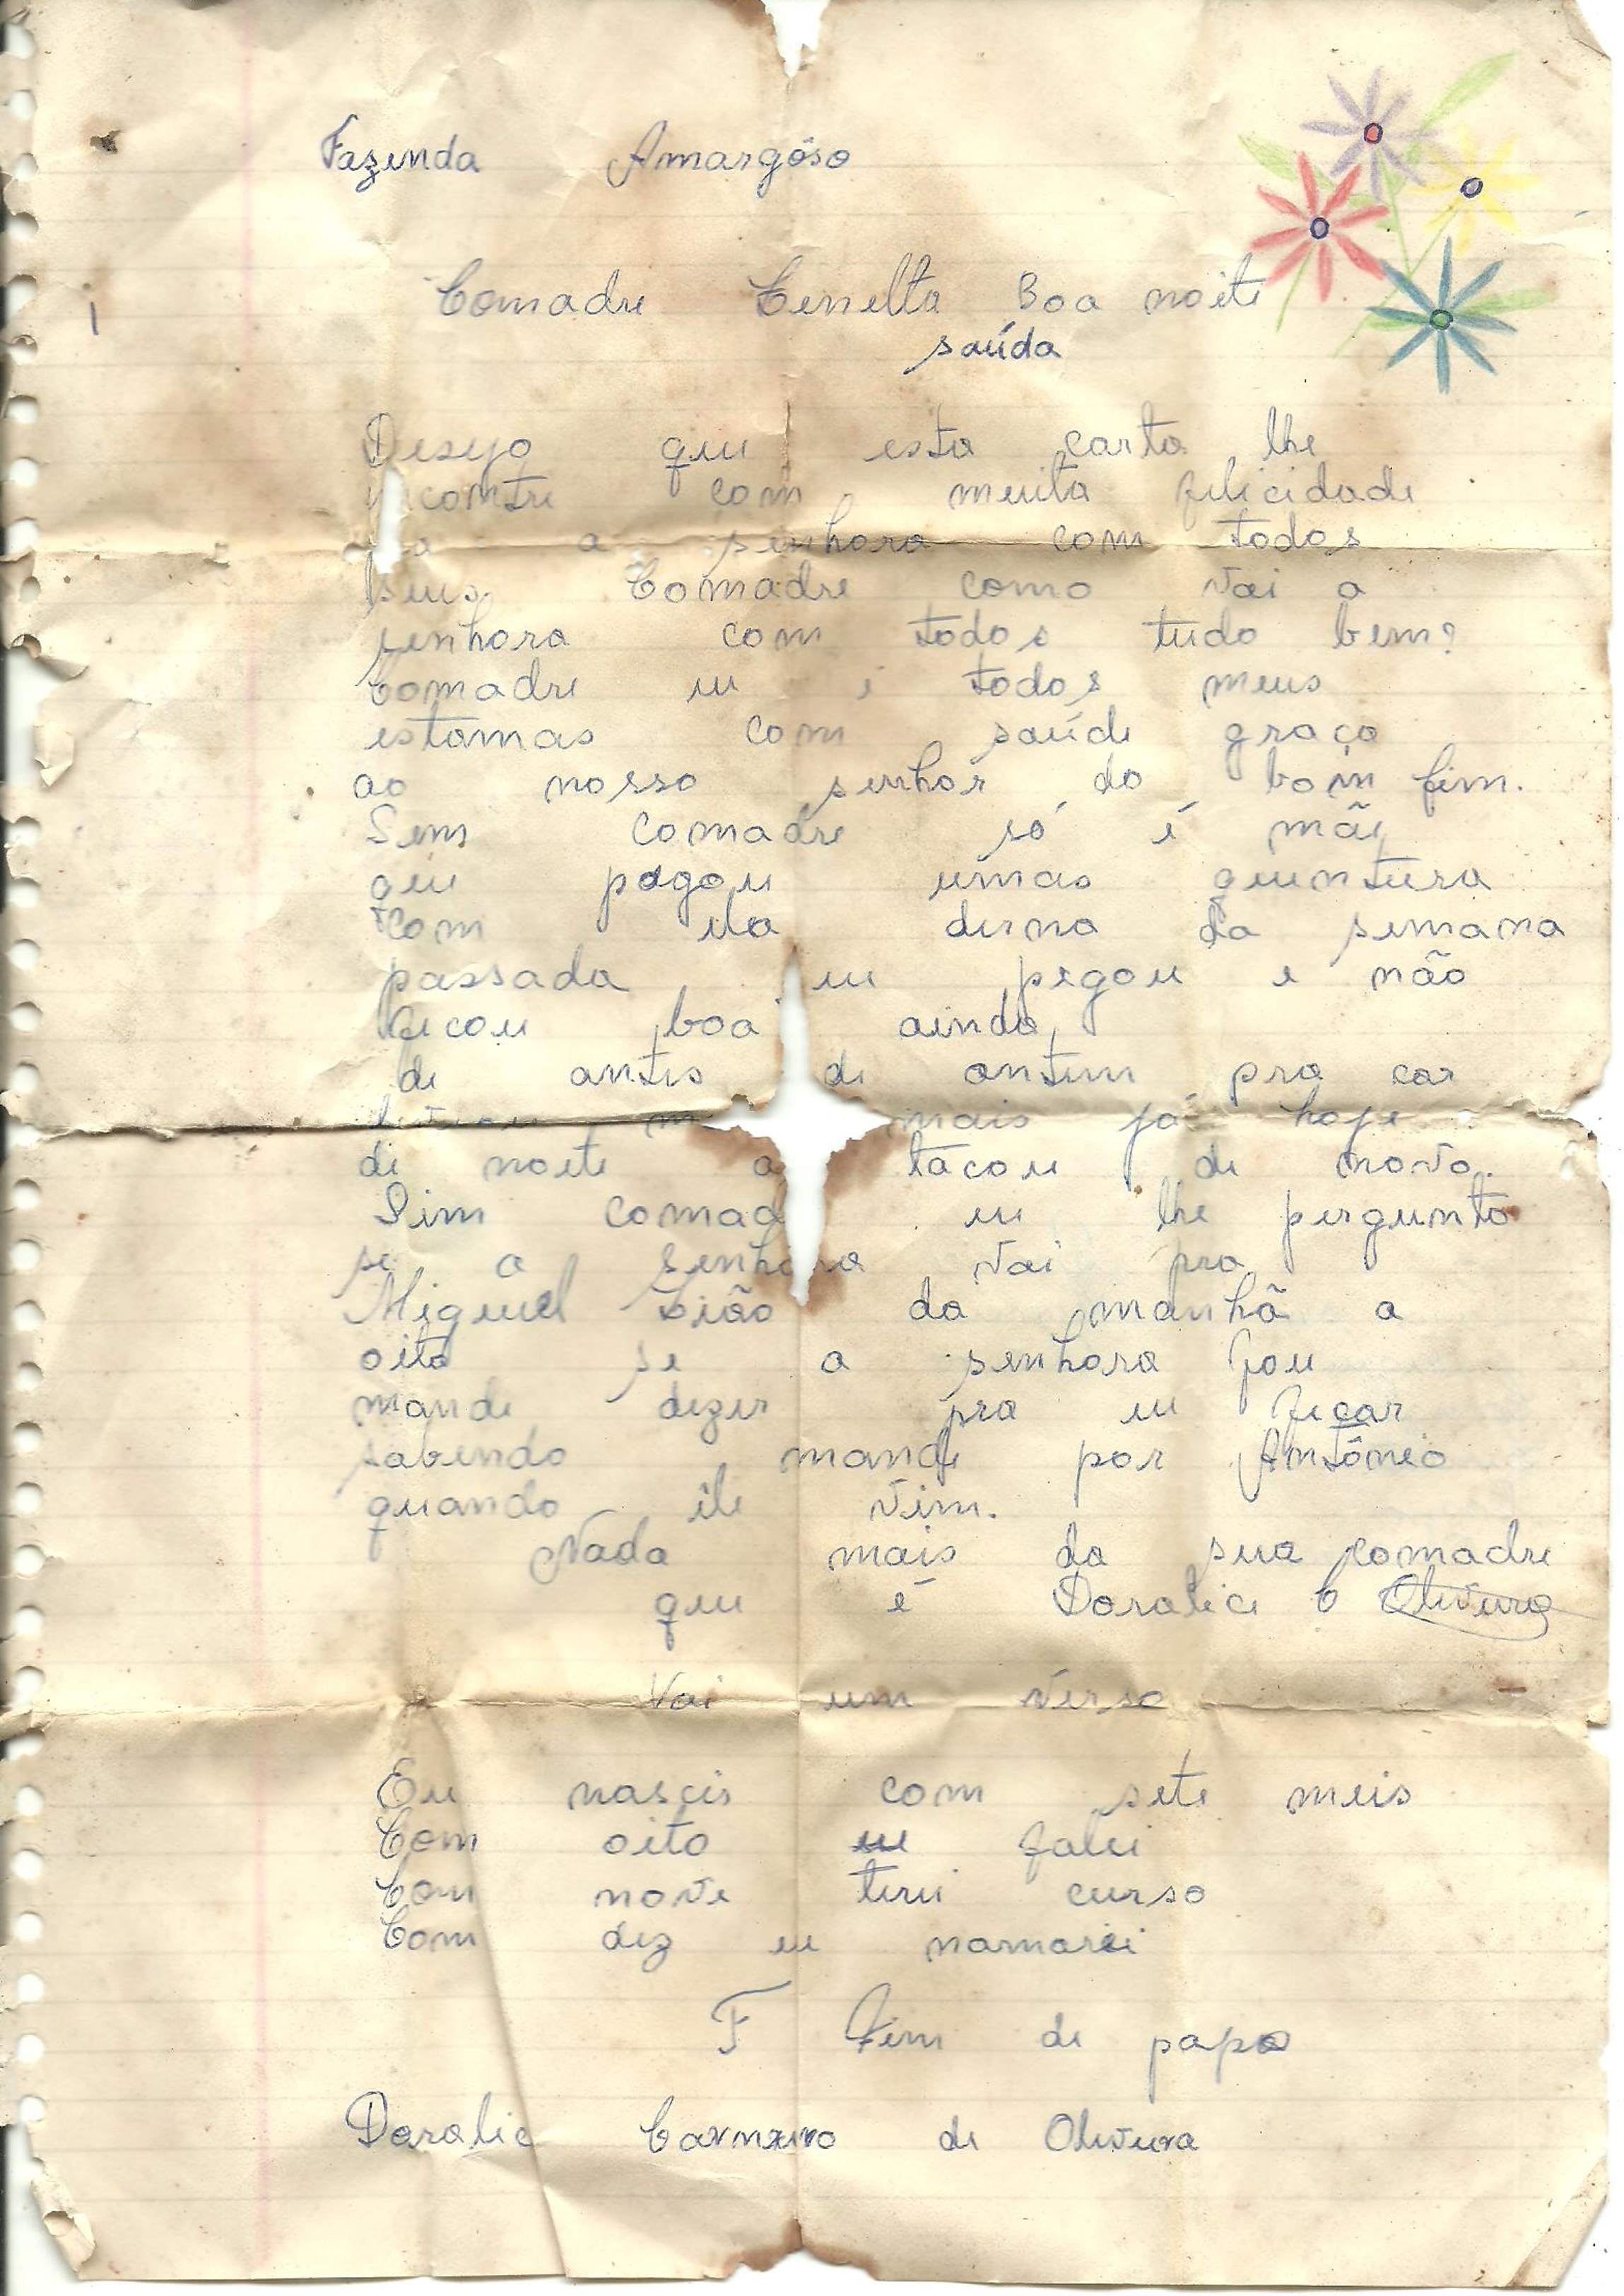 Fazenda Amargôso
Comadre Cenelta Boa noite
saúda
Desejo que esta carta lhe
encontre com muita felicidade
a senhora com todos
seus. Comadre como vai a
senhora com todos tudo bem?
Comadre eu i todos meus
estamas com saúde graça
ao nosso senhor do bom fim.
Sim comadre só é mãe
que pegou umas quentura
com ela derna da semana
passada eu pegou e não
ficou boa ainda,
de antes de ontem pra car
mais já hoje
de noite a tacou de novo.
Sim comad eu lhe pergunto
se a senhora vai pra
Miguel Leião da manhã a
oito se a senhora fou
mande dezer pra eu ficar
sabendo mande por Antônio
quando ele vim.
Nada mais da sua comadre
que é Doralice O Oliveira
Vai um verso
Eu nascis com sete meis
Com oito eu falei
Com nove terei curso
Com dez eu namorei
F Fim de papo
Doralic Carneiro de Oliveira